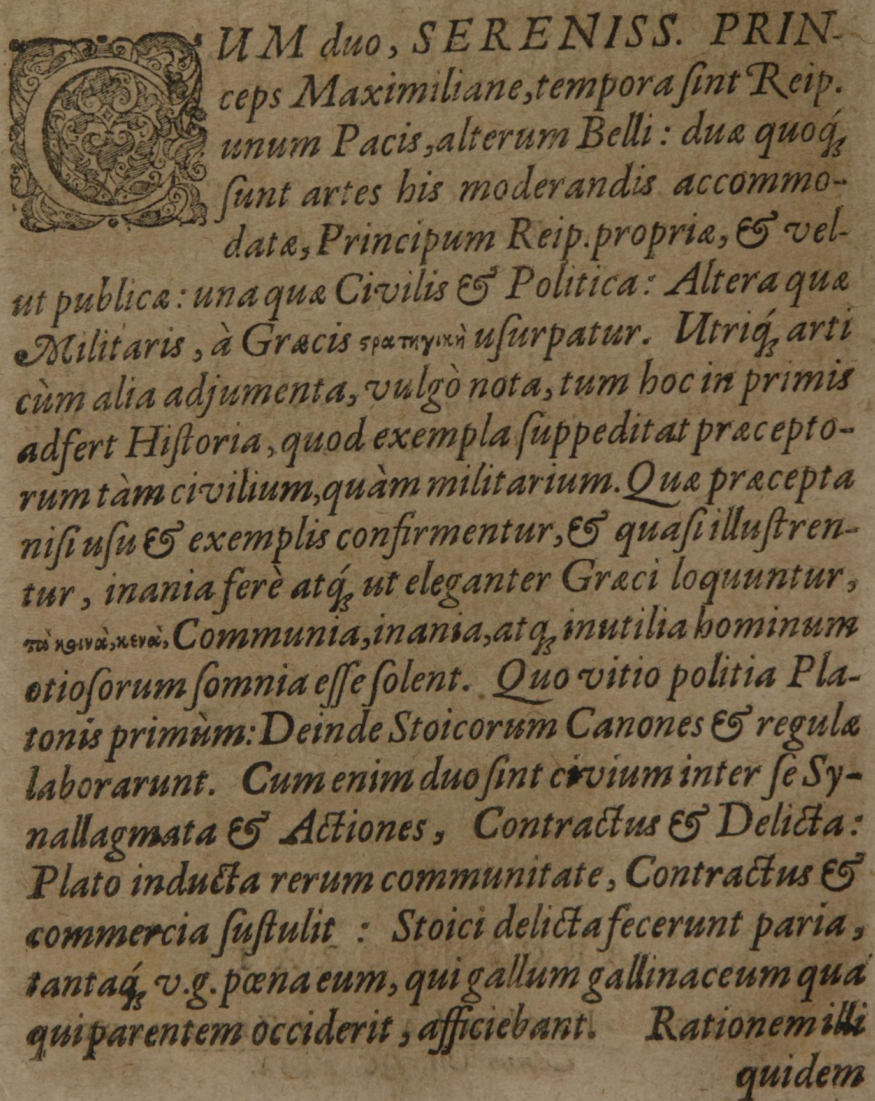 CUM duo, SERENISS. PRIN-
ceps Maximiliane, tempora ſint Reip.
unum Pacis, alterum Belli: duæ quoq́;
ſunt artes his moderandis accommo-
datæ, Principum Reip. propriæ, & vel-
ut publicæ: una quæ Civilis & Politica: Altera quæ
Militaris, à Græcis ςρατηγικὴ uſurpatur. Utriq́; arti
cùm alia adjumenta, vulgò nota, tum hoc in primis
adfert Hiſtoria, quod exempla ſuppeditat præcepto-
rum tàm civilium, quàm militarium. Quæ præcepta
niſi uſu & exemplis confirmentur, & quaſi illuſtren-
tur, inania ferè atq́; ut eleganter Græci loquuntur,
τὰ κοινὰ, κενὰ, Communia, inania, atq; inutilia hominum
otioſorum ſomnia eſſe ſolent. Quo vitio politia Pla-
tonis primùm: Deinde Stoicorum Canones & regulæ
laborarunt. Cum enim duo ſint civium inter ſe Sy-
nallagmata & Actiones, Contractus & Delicta:
Plato inducta rerum communitate, Contractus &
commercia ſuſtulit : Stoici delicta fecerunt paria,
tantaq́; v.g. pœna eum, qui gallum gallinaceum qua
qui parentem occiderit, afficiebant. Rationem illi
quidem